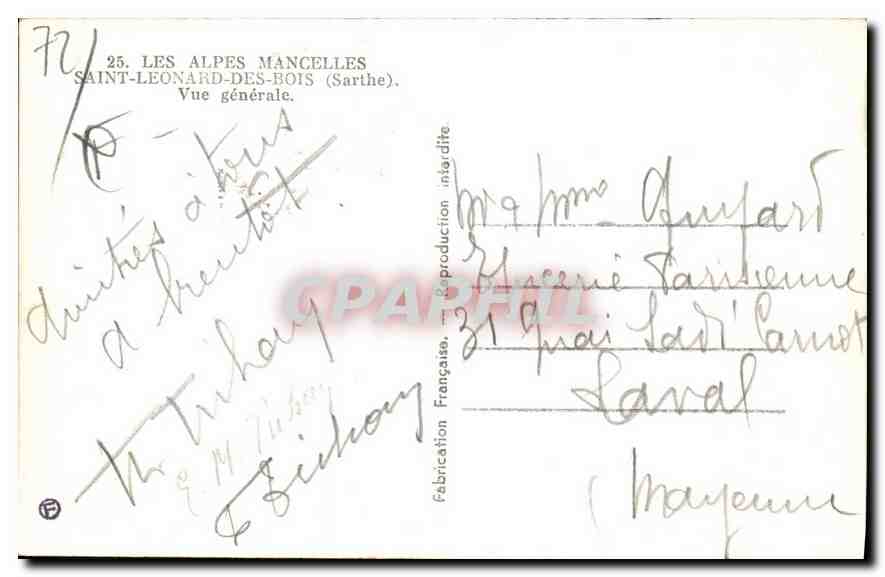 72/
25. LES ALPES MANCELLES
SAINT-LEONARD-DES-BOIS (Sarthe).
Vue générale.
Amitiés à tous
à bientôt
Fabrication Française. — Reproduction interdite
CPARHIL
Mr & Mme Guyard
Epicerie Parisienne
31 Quai Sadi Carnot
Laval
(Mayenne
F